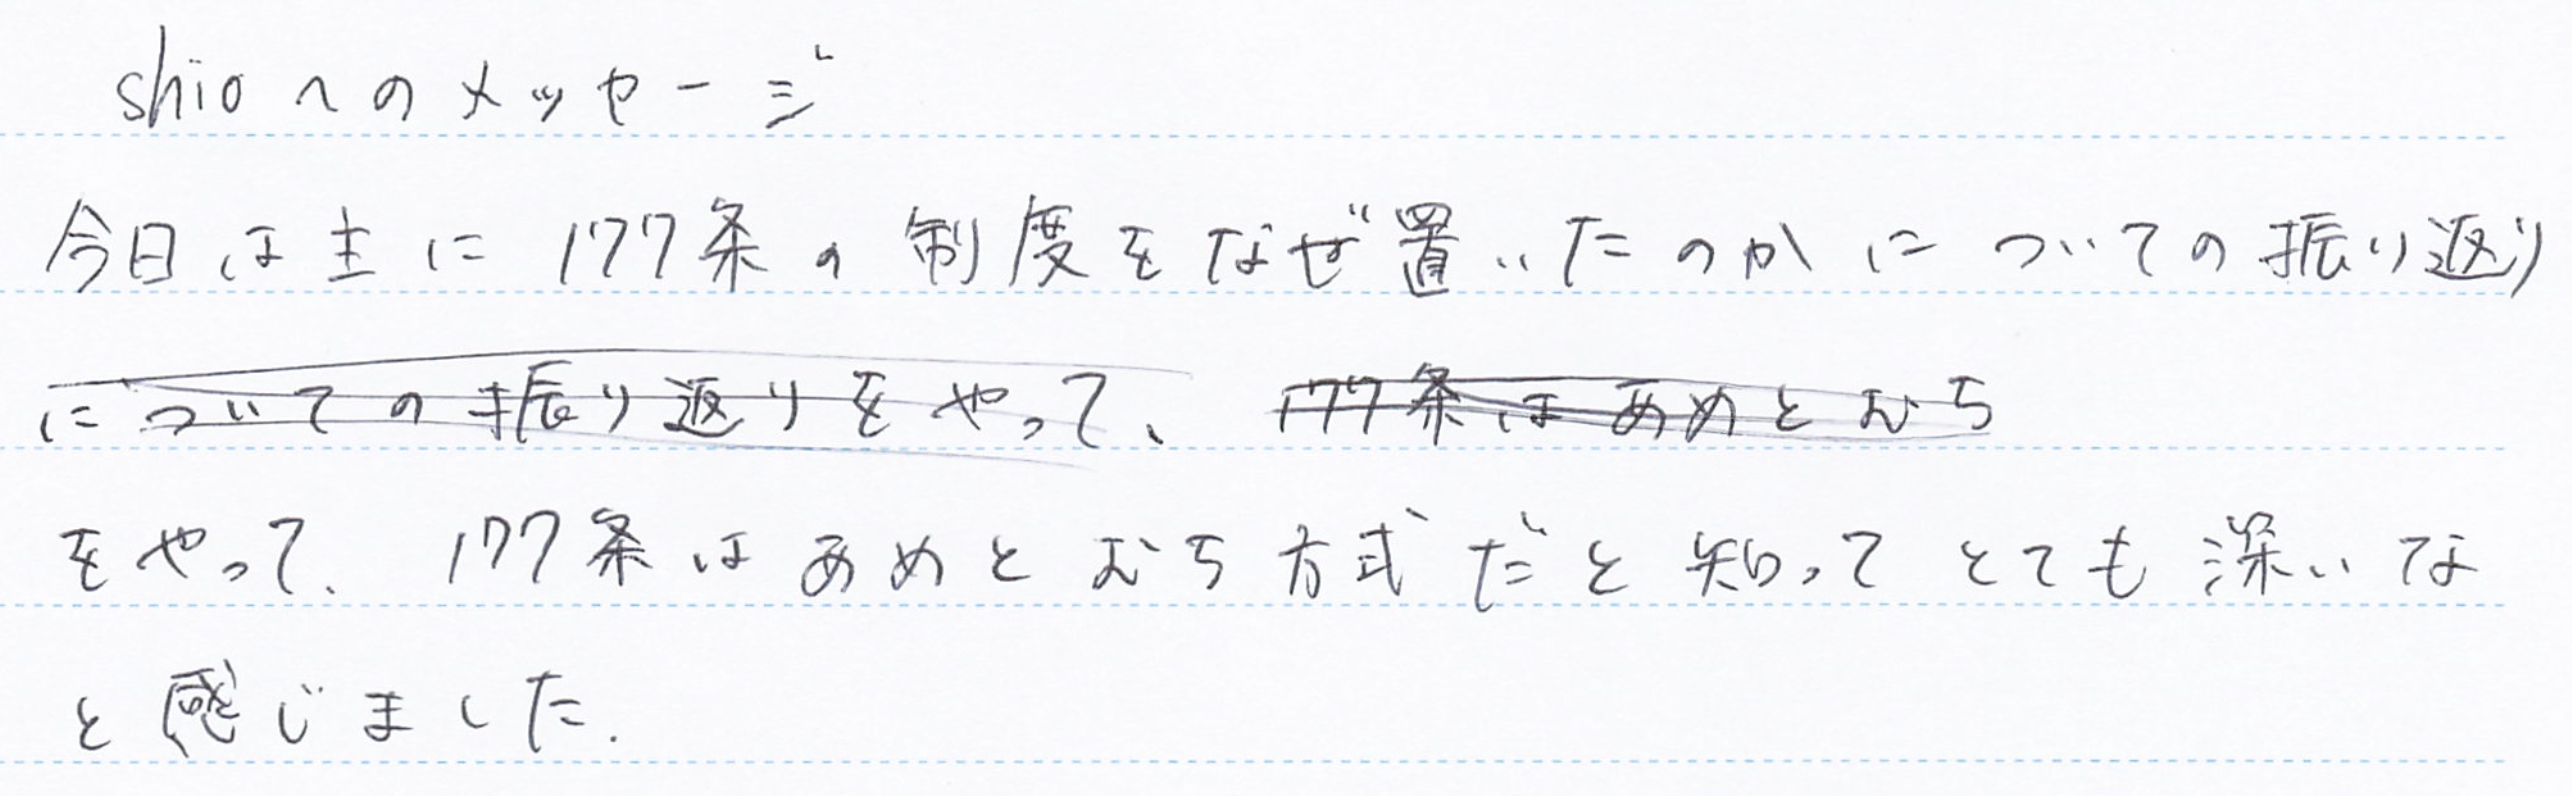 shioへのメッセージ
今日は主に177条の制度をなぜ置いたのかについての振り返り
についての振り返りをやって、177条はあめとむち
をやって、177条はあめとむち方式だと知ってとても深いな
と感じました.